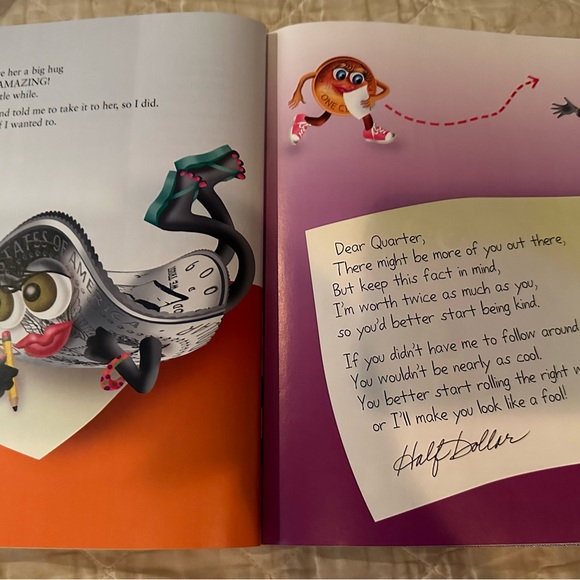 e her a big hug
AMAZING!
tle while.
nd told me to take it to her, so I did.
f I wanted to.
TATES OF AME
ONE C
Dear Quarter,
There might be more of you out there,
But keep this fact in mind,
I'm worth twice as much as you,
so you'd better start being kind.
If you didn't have me to follow around
You wouldn't be nearly as cool.
You better start rolling the right w
or I'll make you look like a fool!
Half Dollar